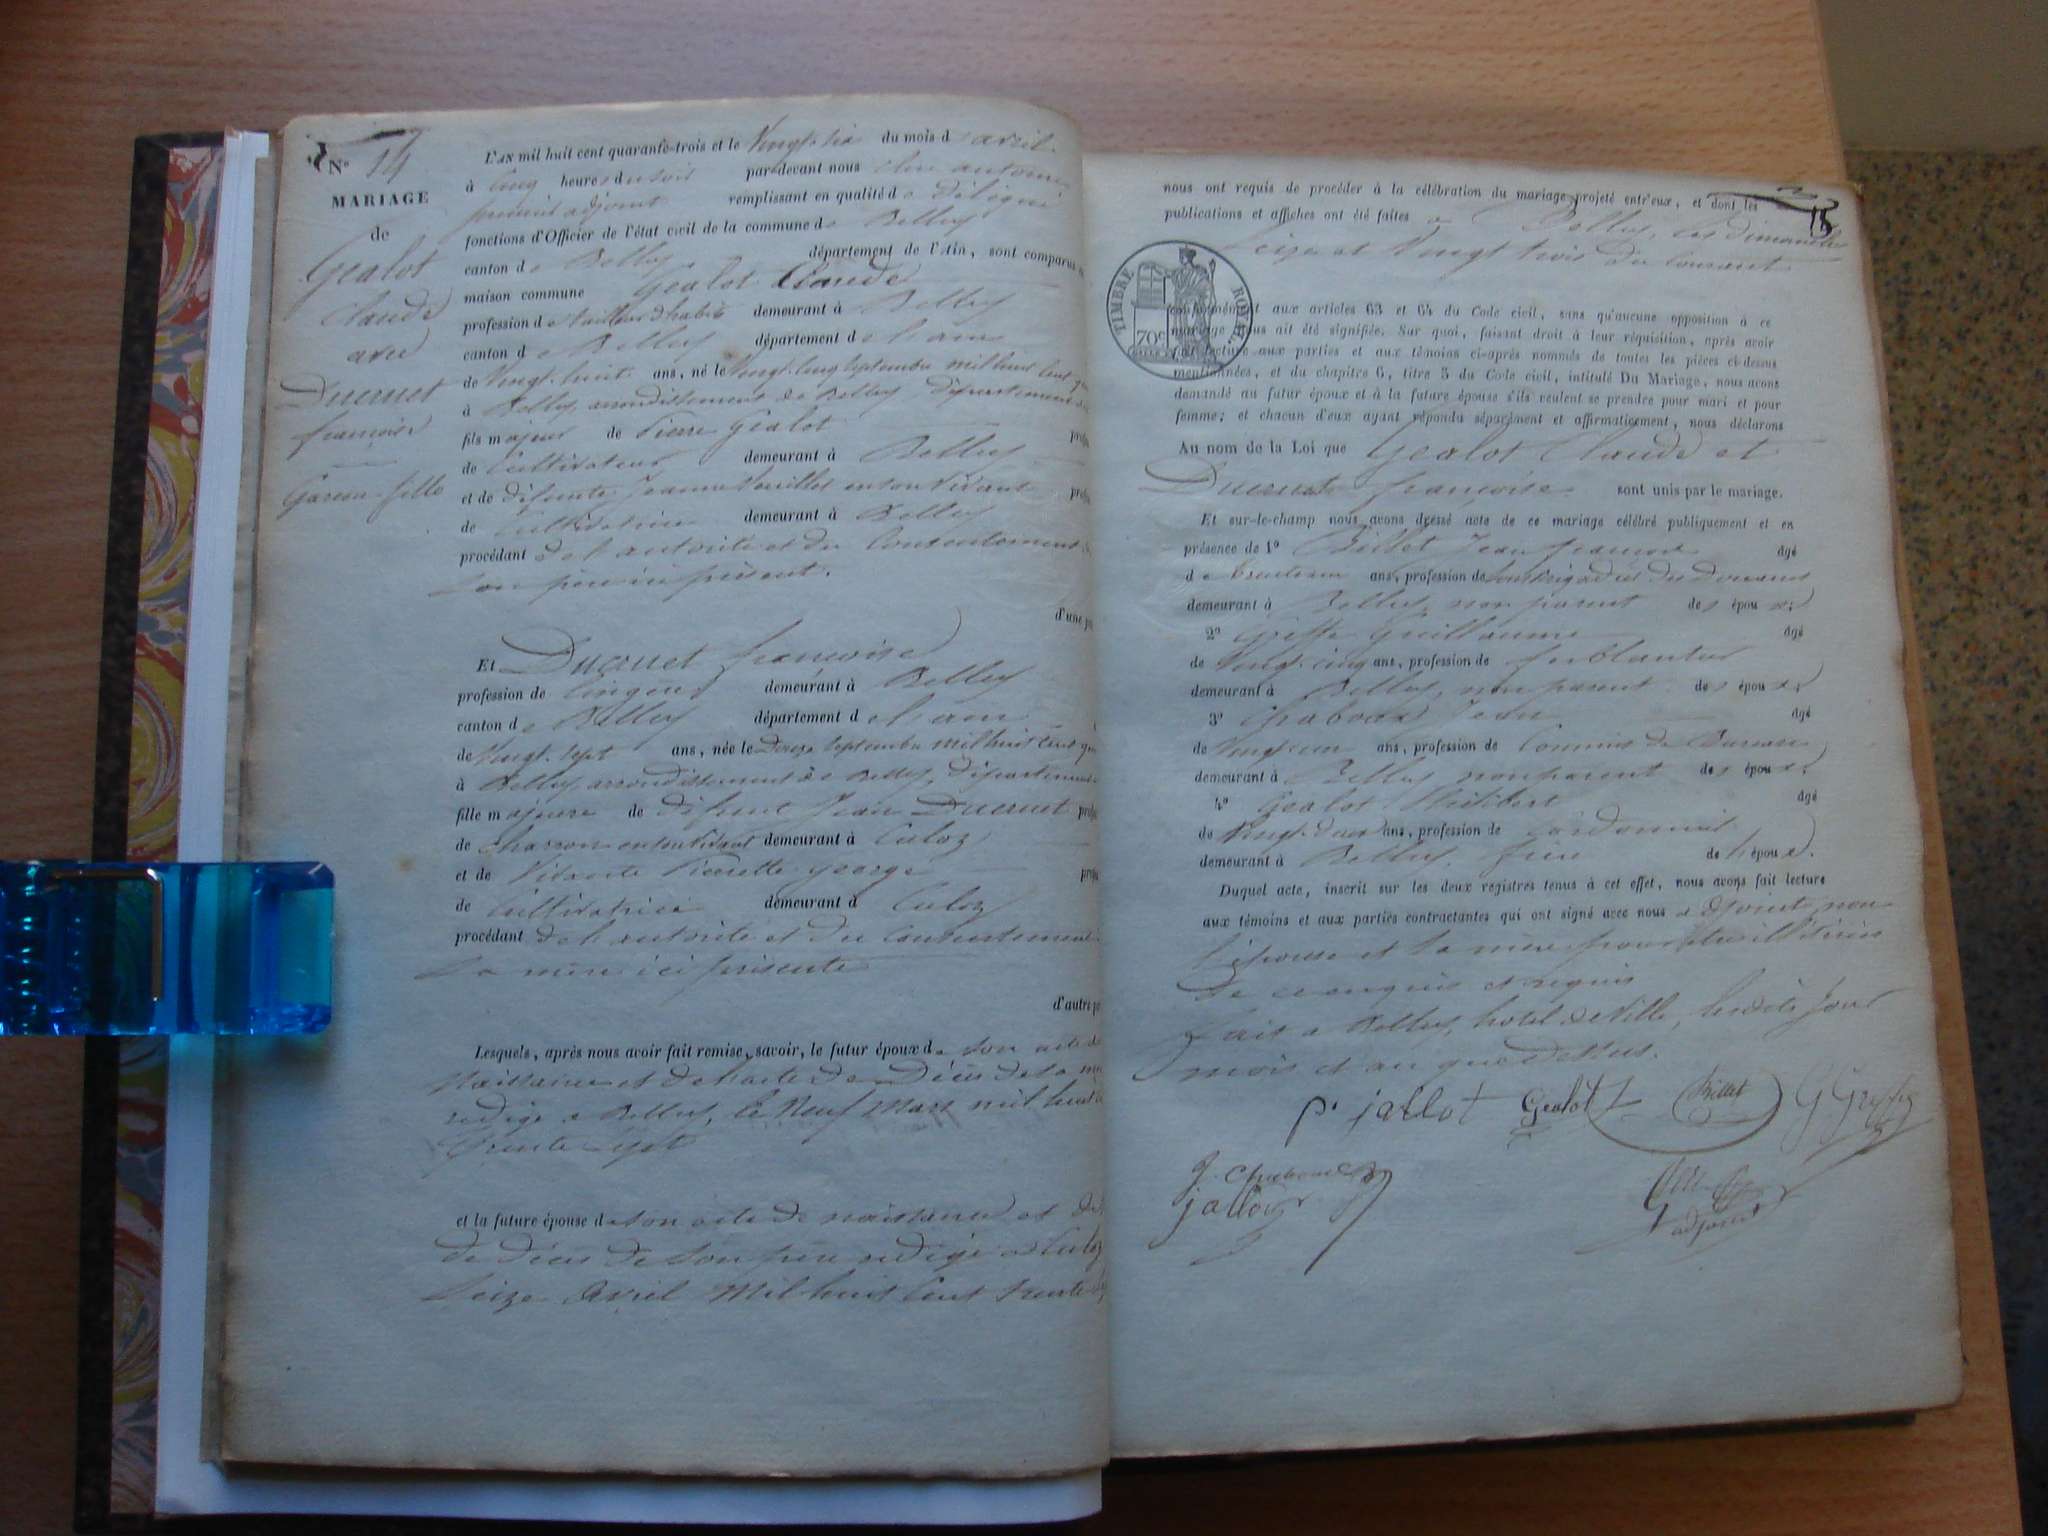 No 14
MARIAGE
de
Gealot
Claude
avec
Ducruet
françoise
Garçon fille
L'AN mil huit cent quarante-trois et le Vingt-six du mois d avril
à Cinq heures du soir pardevant nous
premier adjoint remplissant en qualité de Délégué
fonctions d'Officier de l'état civil de la commune de Belley
canton de Belley département de l'Ain, sont comparus en
maison commune Gealot Claude
profession de tailleur d'habits demeurant à Belley
canton de Belley département de l'ain
de Vingt-huit ans, né le Vingt-Cinq septembre mil huit cent
à Belley, arrondissement de Belley, Département
fils majeur de Pierre Gealot
de Cultivateur demeurant à Belley
et de défunte Jeanne en son vivant
de Cultivatrice demeurant à Belley
procédant de l'autorité et du Consentement
son père ici présent.
d'une
Et Ducruet françoise
profession de Lingère demeurant à Belley
canton de Belley département de l'ain
de Vingt-sept ans, née le septembre mil huit cent
à Belley arrondissement de Belley, Département
fille majeure de défunt Jean Ducruet
de Charron en son vivant demeurant à Culoz
et de Vivante Pierrette george
de Cultivatrice demeurant à Culoz
procédant de l'autorité et du Consentement
sa mère ici présente
d'autre
Lesquels, après nous avoir fait remise, savoir, le futur époux de son acte de
Naissance et de l'acte de Décès de sa
rédigé à Belley, le Neuf Mars mil huit
trente-sept
et la future épouse de son acte de naissance et de
de décès de son père rédigé à Culoz
Seize Avril Mil huit Cent trente
15
nous ont requis de procéder à la célébration du mariage projeté entr'eux, et dont les
publications et affiches ont été faites à Belley, les dimanches
Seize et Vingt trois du Courant
TIMBRE ROYAL
70c
conformément aux articles 63 et 64 du Code civil, sans qu'aucune opposition à ce
mariage nous ait été signifiée. Sur quoi, faisant droit à leur réquisition, après avoir
fait lecture aux parties et aux témoins ci-après nommés de toutes les pièces ci-dessus
mentionnées, et du chapitre 6, titre 5 du Code civil, intitulé Du Mariage, nous avons
demandé au futur époux et à la future épouse s'ils veulent se prendre pour mari et pour
femme; et chacun d'eux ayant répondu séparément et affirmativement, nous déclarons
Au nom de la Loi que Gealot Claude et
Ducruet françoise sont unis par le mariage.
Et sur-le-champ nous avons dressé acte de ce mariage célébré publiquement et en
présence de 1o Billet Jean françois âgé
de ans, profession de Sous brigadier des Douanes
demeurant à Belley, non parent des époux;
2o Guillaume âgé
de Vingt-cinq ans, profession de ferblantier
demeurant à Belley, non parent des époux;
3o Jean âgé
de ans, profession de Commis de Bureau
demeurant à Belley non parent des époux;
4o Gealot Philibert âgé
de Vingt-deux ans, profession de Cordonnier
demeurant à Belley, frère de l'époux.
Duquel acte, inscrit sur les deux registres tenus à cet effet, nous avons fait lecture
aux témoins et aux parties contractantes qui ont signé avec nous adjoint, non
l'épouse et sa mère pour être illitérées
de ce enquis et requis
fait à Belley, hotel de Ville, lesdits Jour
mois et an que dessus.
p. jallot Gealot Billet
jallot
adjoint